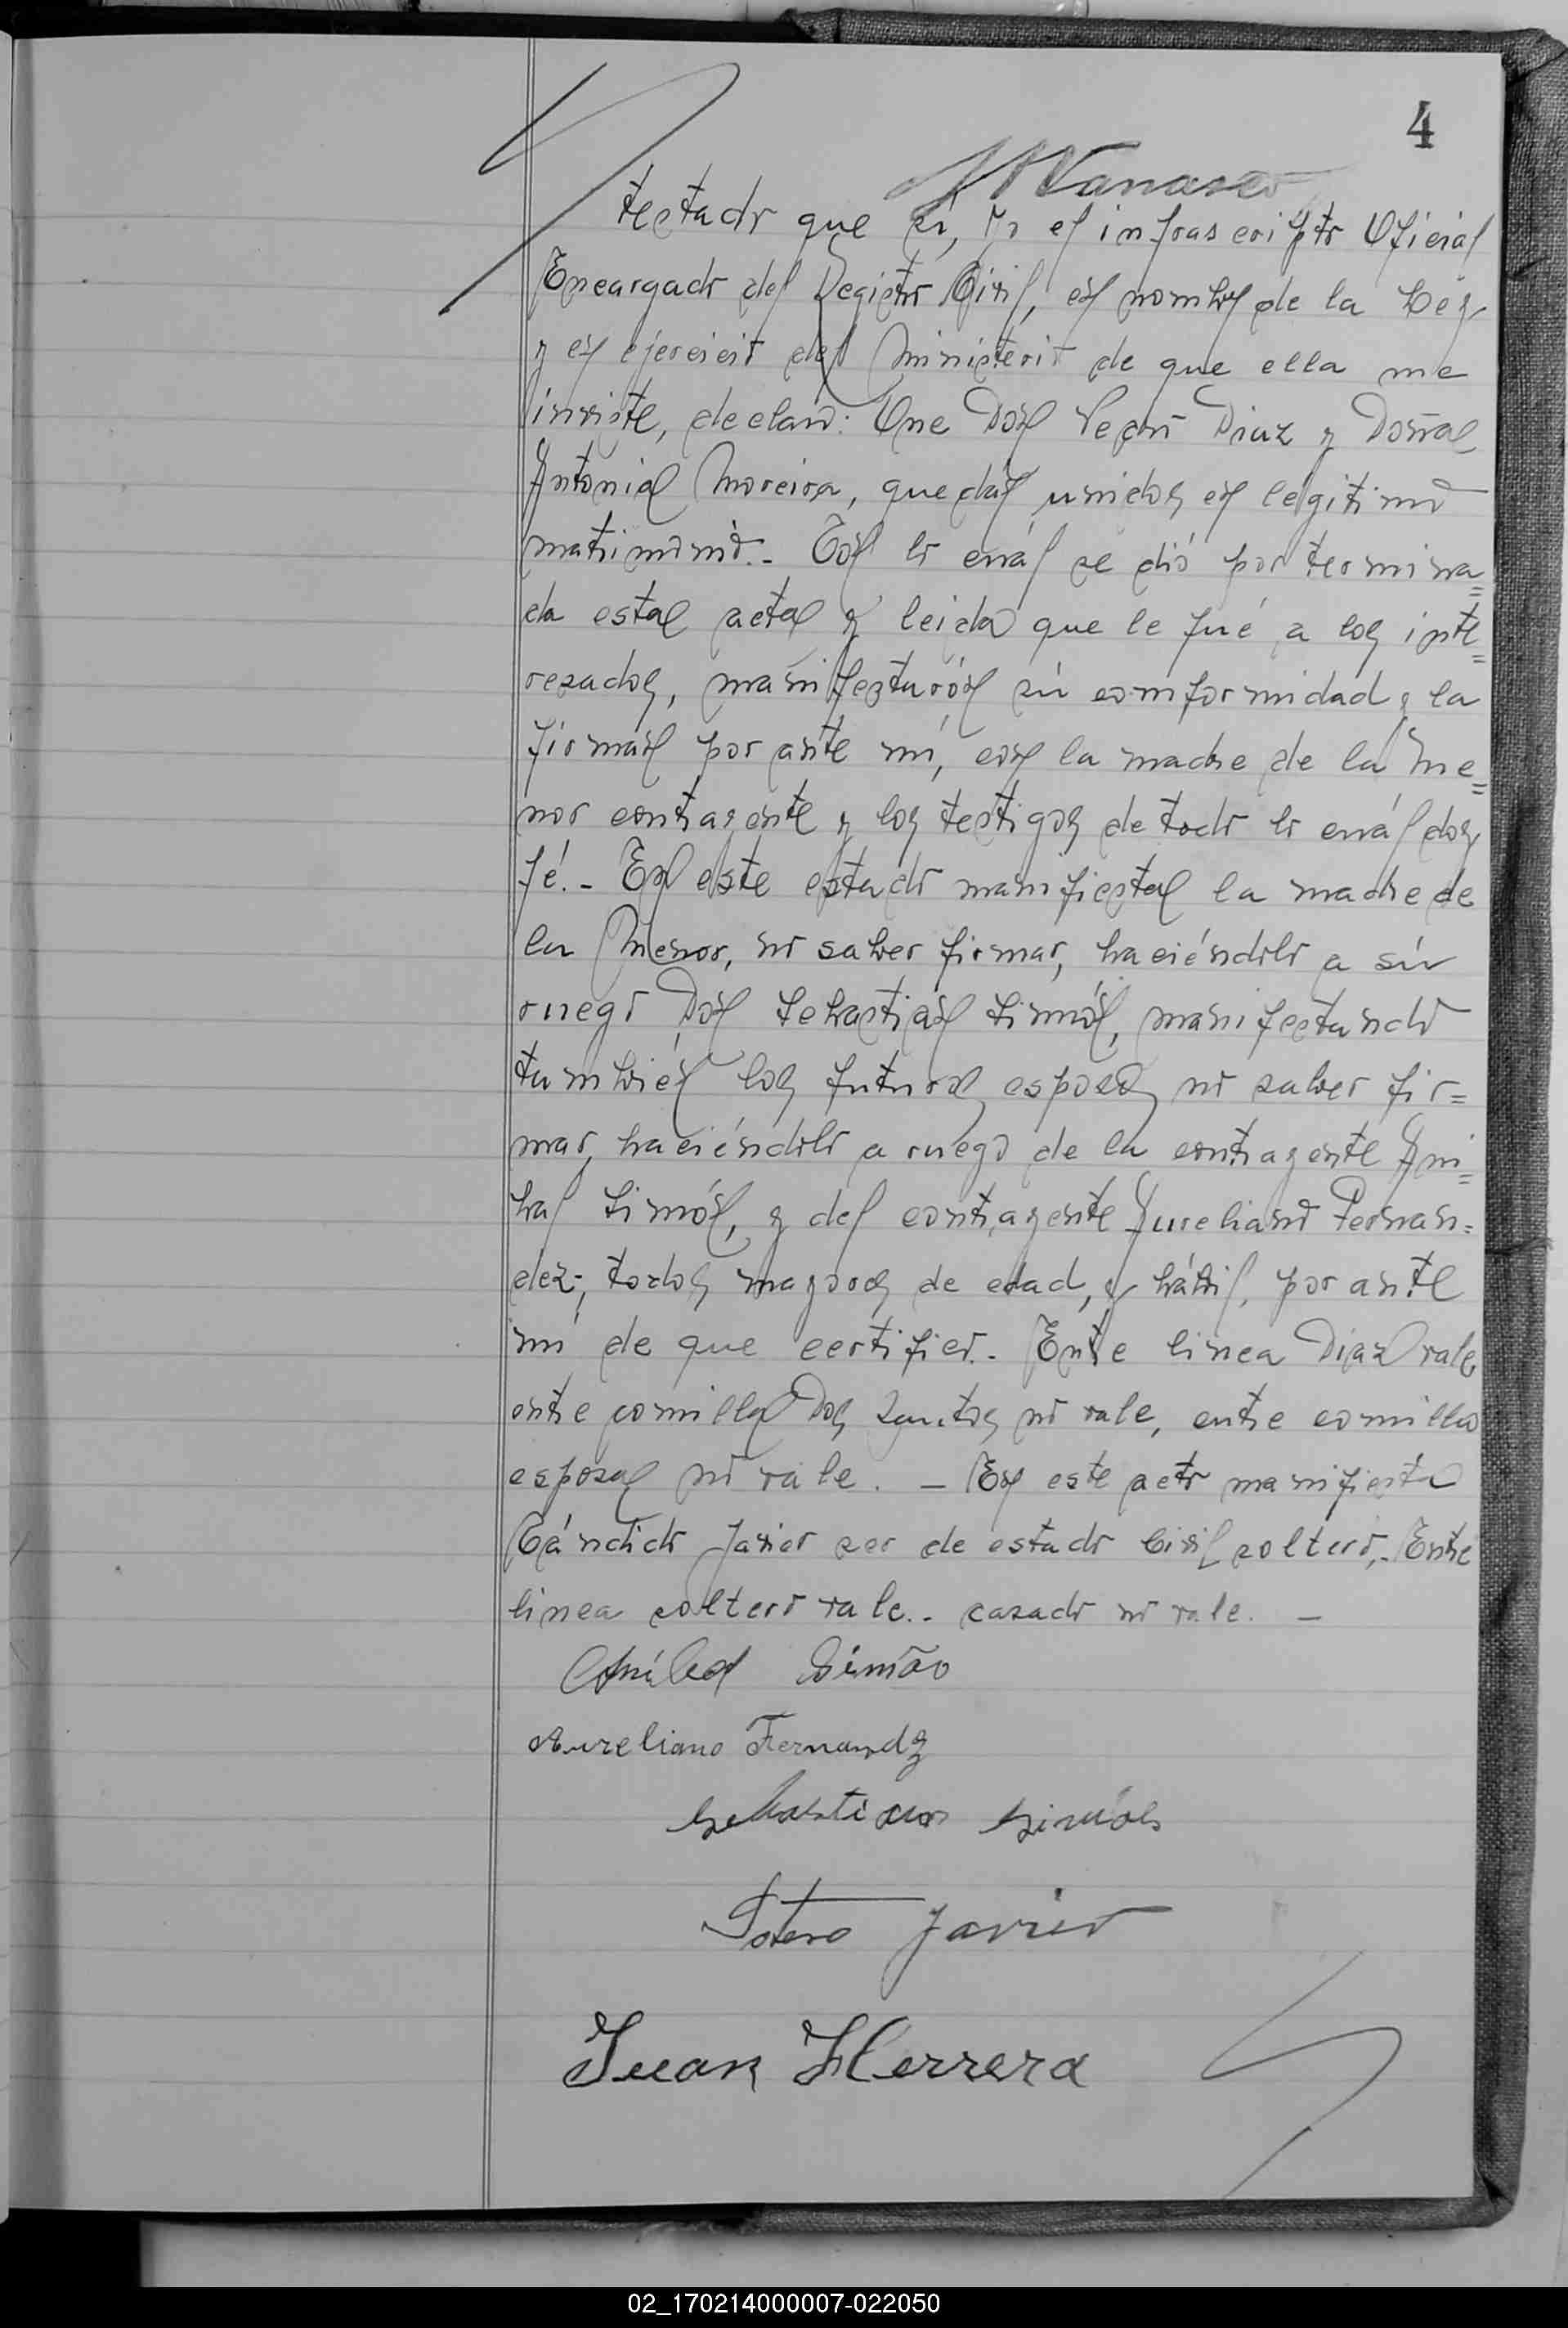 4
testado que sí, Yo el infrascripto Oficial
Encargado del Registro Civil, en nombre de la Ley
y en ejercicio del Ministerio de que ella me
inviste, declaro: Que Don Diaz y Doña
Antonia Moreira, quedan unidos en legitimo
matrimonio.- Con lo cuál se dió por termina=
da esta acta y leida que le fué a los inte=
resados, manifestarón sú comformidad y la
firmán por ante mí, con la madre de la Me=
nor contrayente y los testigos de todo lo cuál doy
fé.- En este estado manifiesta la madre de
la Menor, no saber firmar, haciéndolo a sú
ruego Don Sebastián Simón, manifestando
tambien los futuros esposos no saber fir=
mar, haciéndolo a ruego de la contrayente Ani=
bal Simón, y del contrayente Aureliano Fernan=
dez; todos mayores de edad, y hábil, por ante
mí de que certifico.- Entre linea Diaz vale
entre comilla Dos Santos no vale, entre comilla
esposas no vale. - En este acto manifiesta
Cándido Javier ser de estado Civil soltero,- Entre
linea soltero vale.- casado no vale. -
Aníbal Simão
Aureliano Fernandez
Sebastian Simões
Sotero Javier
Juan Herrera
02_170214000007-022050